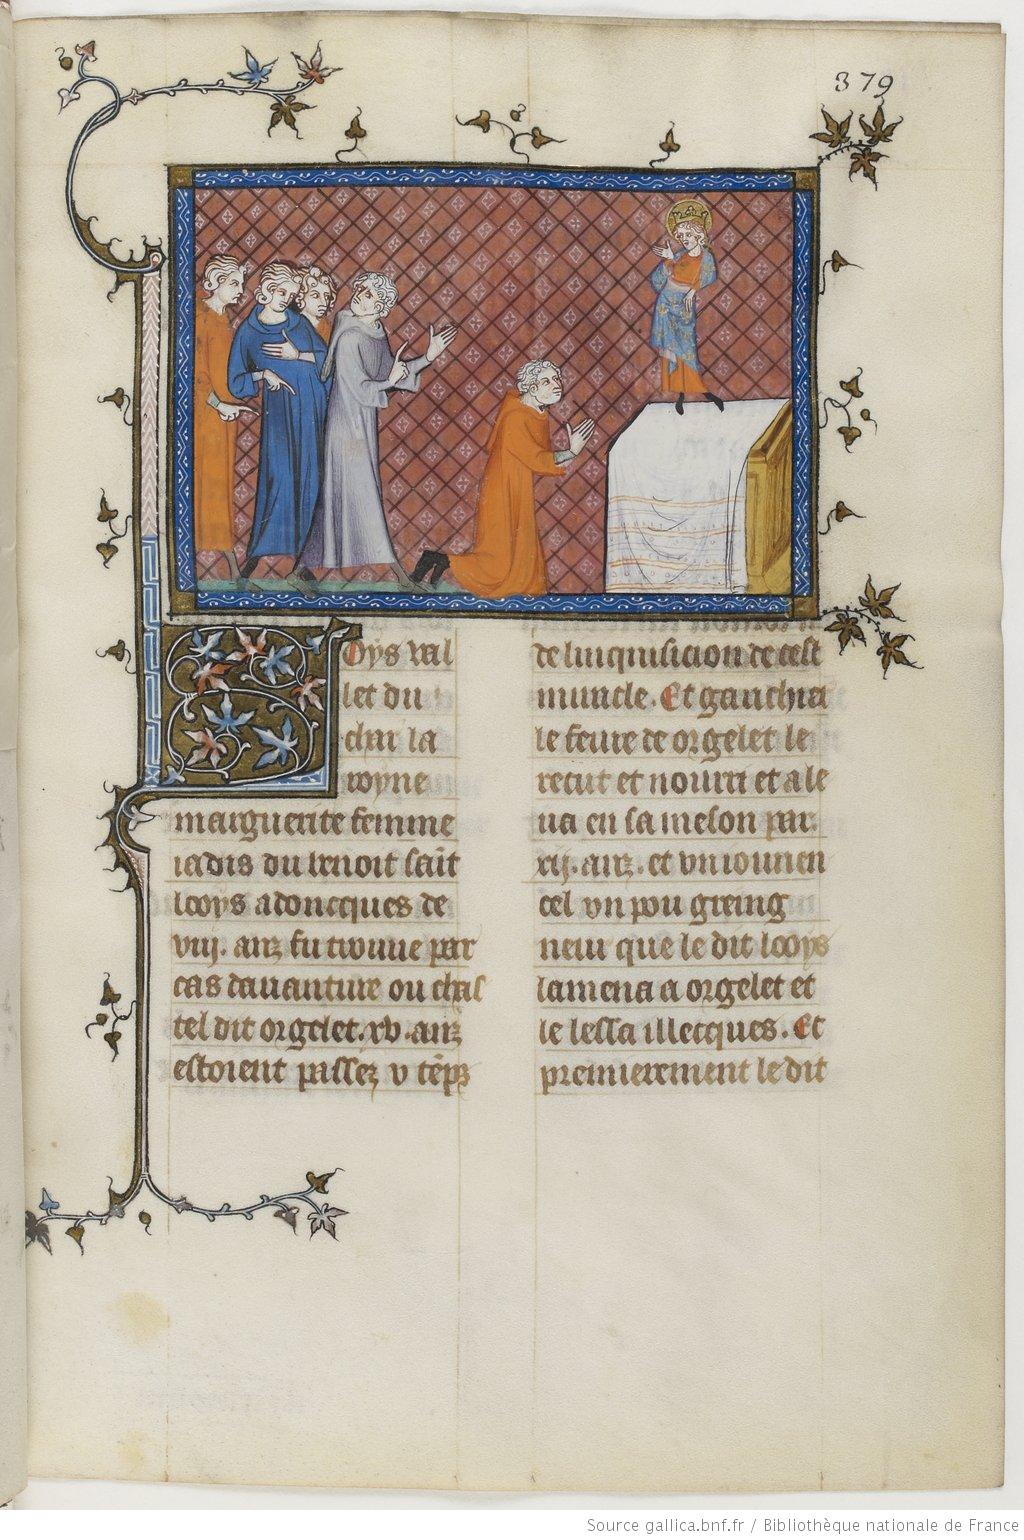 379
Loys val
let du
char la
royne
marguerite femme
iadis du benoit saīt
looys adoncques de
viij. anz fu trouue par
cas dauanture ou chas
tel dit orgelet. xv. anz
estoient passez v tēps
de linquisicion de cest
miracle. Et gauchier
le feure de orgelet le
recut et nourri et ale
ua en sa meson par
xij. anz. et vn iouuen
cel vn pou greing
neur que le dit looys
lamena a orgelet et
le lessa illecques. Et
premierement le dit
Source gallica.bnf.fr / Bibliothèque nationale de France